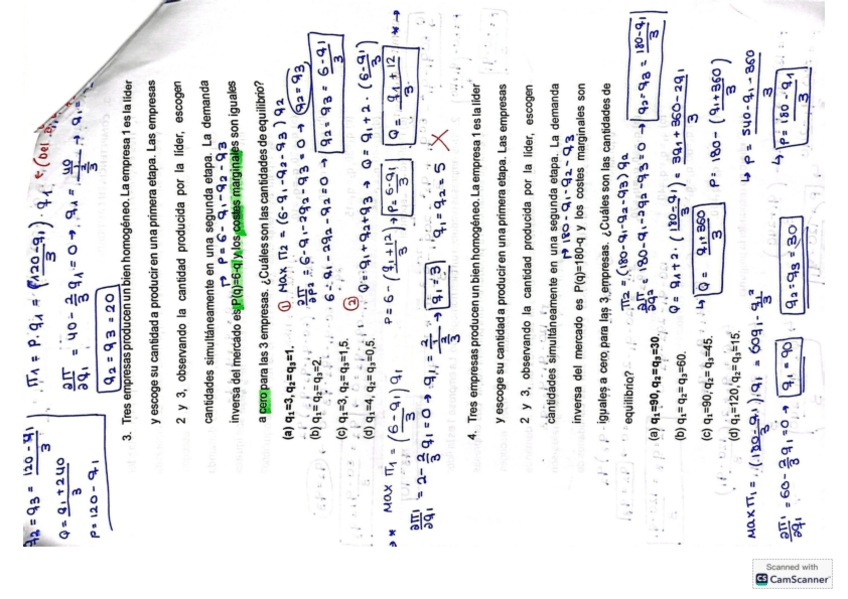 q2 = q3 = 120 - q1 / 3
Q = q1 + 240 / 3
P = 120 - q1 / 3
π1 = P. q1 = (120 - q1 / 3) . q1
∂π / ∂q1 = 40 - 2/3 q1 = 0 → q1 = 40 / 2/3 → q1 =
q2 = q3 = 20
3. Tres empresas producen un bien homogéneo. La empresa 1 es la líder
y escoge su cantidad a producir en una primera etapa. Las empresas
2 y 3, observando la cantidad producida por la líder, escogen
cantidades simultáneamente en una segunda etapa. La demanda
↱ P = 6 - q1 - q2 - q3
inversa del mercado es P(q)=6-q y los costes marginales son iguales
a cero para las 3 empresas. ¿Cuáles son las cantidades de equilibrio?
(a) q1=3, q2=q3=1.
(b) q1= q2= q3=2.
(c) q1=3, q2= q3=1,5.
(d) q1=4, q2= q3=0,5.
① MAX π2 = (6 - q1 - q2 - q3) q2
∂π / ∂p2 = 6 - q1 - 2q2 - q3 = 0 → q2 = q3
6 - q1 - 2q2 - q2 = 0 → q2 = q3 = 6 - q1 / 3
② Q = q1 + q2 + q3 → Q = q1 + 2 . (6 - q1 / 3)
Q = q1 + 12 / 3
P = 6 - (q1 + 12 / 3) → P = 6 - q1 / 3
* MAX π1 = (6 - q1 / 3) q1
∂π1 / ∂q1 = 2 - 2/3 q1 = 0 → q1 = 2 / 2/3 → q1 = 3
q1 = q2 = 5 X
4. Tres empresas producen un bien homogéneo. La empresa 1 es la líder
y escoge su cantidad a producir en una primera etapa. Las empresas
2 y 3, observando la cantidad producida por la líder, escogen
cantidades simultáneamente en una segunda etapa. La demanda
↱ 180 - q1 - q2 - q3
inversa del mercado es P(q)=180-q y los costes marginales son
iguales a cero para las 3 empresas. ¿Cuáles son las cantidades de
equilibrio?
(a) q1=90, q2=q3=30.
(b) q1= q2= q3=60.
(c) q1=90, q2= q3=45.
(d) q1=120, q2= q3=15.
π2 = (180 - q1 - q2 - q3) q2
∂π / ∂q2 = 180 - q1 - 2q2 - q3 = 0 → q2 = q3 = 180 - q1 / 3
Q = q1 + 2 . (180 - q1 / 3) = 3q1 + 360 - 2q1 / 3
↳ Q = q1 + 360 / 3
P = 180 - (q1 + 360 / 3)
↳ P = 540 - q1 - 360 / 3
↳ P = 180 - q1 / 3
MAX π1 = (180 - q1 / 3) q1 = 60q1 - q1² / 3
∂π1 / ∂q1 = 60 - 2/3 q1 = 0 → q1 = 90
q2 = q3 = 30
Scanned with
CS CamScanner